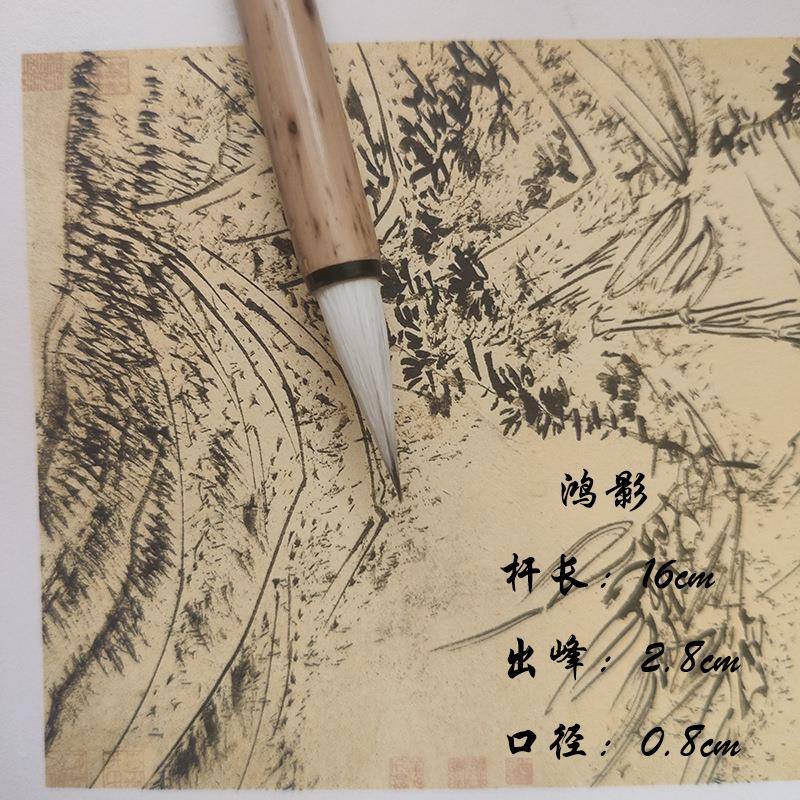 鸿影
杆长：16cm
出峰：2.8cm
口径：0.8cm